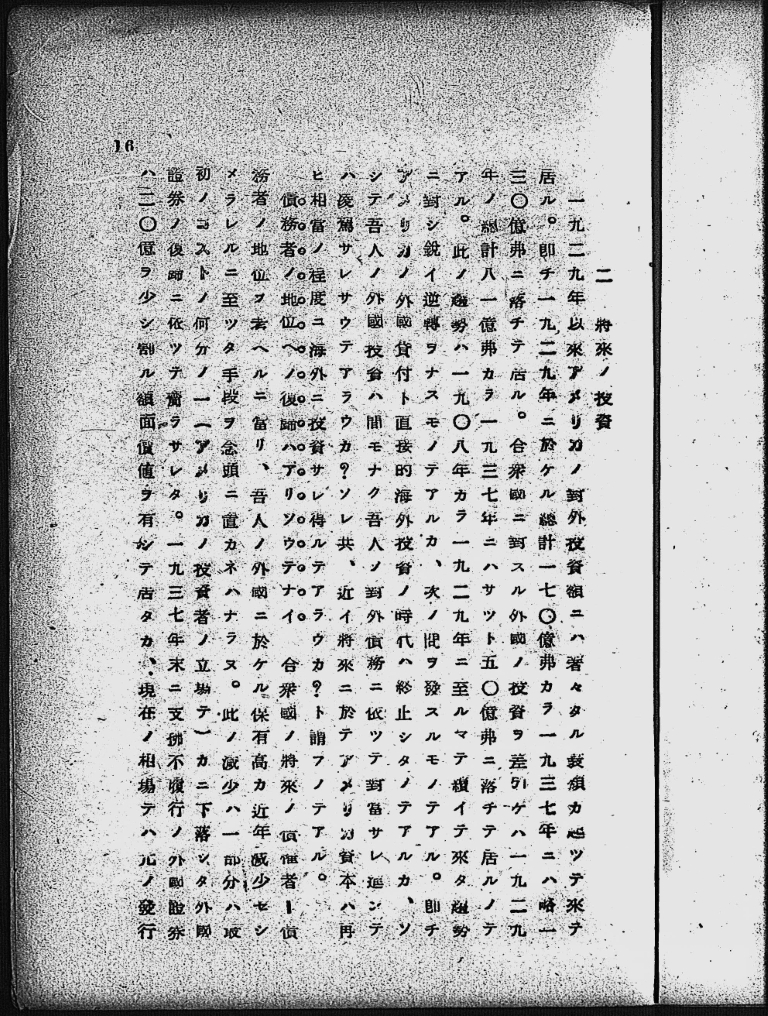 二　將來ノ投資
一九二九年以來アメリカノ對外投資額ニハ著々タル衰頽カ起ツテ來テ
居ル。卽チ一九二九年ニ於ケル總計一七〇億弗カラ一九三七年ニハ略一
三〇億弗ニ落チテ居ル。合衆國ニ對スル外國ノ投資ヲ差引ケハ一九二九
年ノ總計八一億弗カラ一九三七年ニハサツト五〇億弗ニ落チテ居ルノテ
アル。此ノ趨勢ハ一九〇八年カラ一九二九年ニ至ルマテ續イテ來タ趨勢
ニ對シ銳イ逆轉ヲナスモノテアルカ、次ノ問ヲ發スルモノテアル。卽チ
アメリカノ外國貸付ト直接的海外投資ノ時代ハ終止シタノテアルカ、ソ
シテ吾人ノ外國投資ハ間モナク吾人ノ對外債務ニ依ツテ對當サレ進ンテ
ハ凌駕サレサウテアラウカ？ソレ共、近イ將來ニ於テアメリカ資本ハ再
ヒ相當ノ程度ニ海外ニ投資サレ得ルテアラウカ？ト謂フノテアル。
債務者ノ地位ヘノ復歸ハアリソウテナイ。合衆國ノ將來ノ債權者ー債
務者ノ地位ヲ考ヘルニ當リ、吾人ノ外國ニ於ケル保有高カ近年減少セシ
メラレルニ至ツタ手段ヲ念頭ニ置カネハナラヌ。此ノ減少ハ一部分ハ最
初ノコストノ何分ノ一（アメリカノ投資者ノ立場テ）カニ下落シタ外國
證券ノ復歸ニ依ツテ齎ラサレタ。一九三七年末ニ支拂不履行ノ外國證券
ハ二〇億ヲ少シ割ル額面價値ヲ有シテ居タカ、現在ノ相場テハ元ノ發行
16